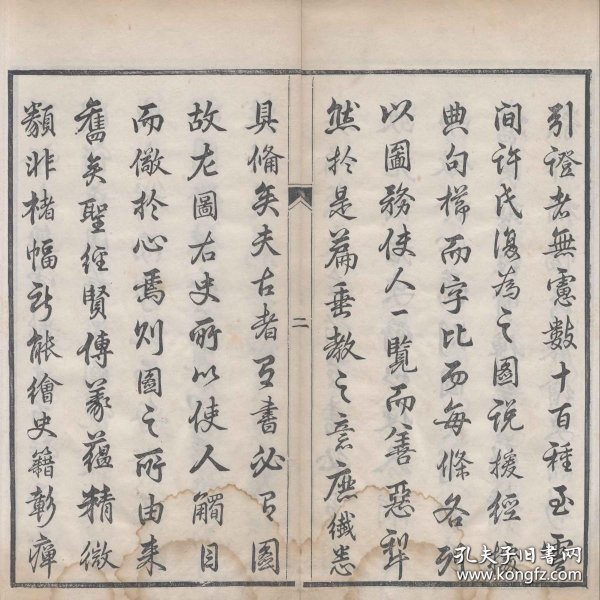 引證者無慮數十百種至雲
間許氏復為之圖說援經
典句櫛而字比而每條各列
以圖務使人一覽而善惡犁
然於是篇垂教之意庶纖悉
二
具備矣夫古者有書必有圖
故左圖右史所以使人觸目
而儆於心焉則圖之所由來
舊矣聖經賢傳義蘊精微
類非楮幅所能繪史籍彰癉
孔夫子旧书网
www.kongfz.com